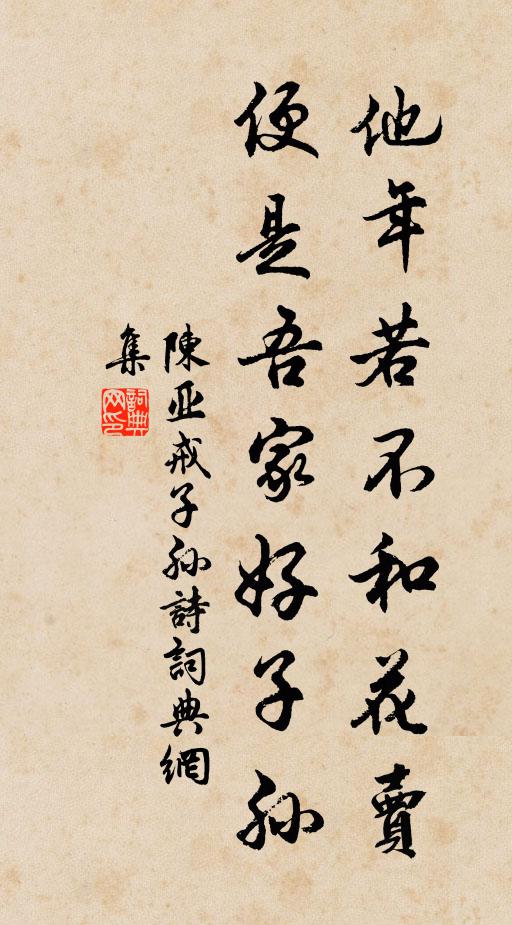 他年若不和花賣
便是吾家好子孫
陳亚戒子孫詩詞典網
集
詞典
网印